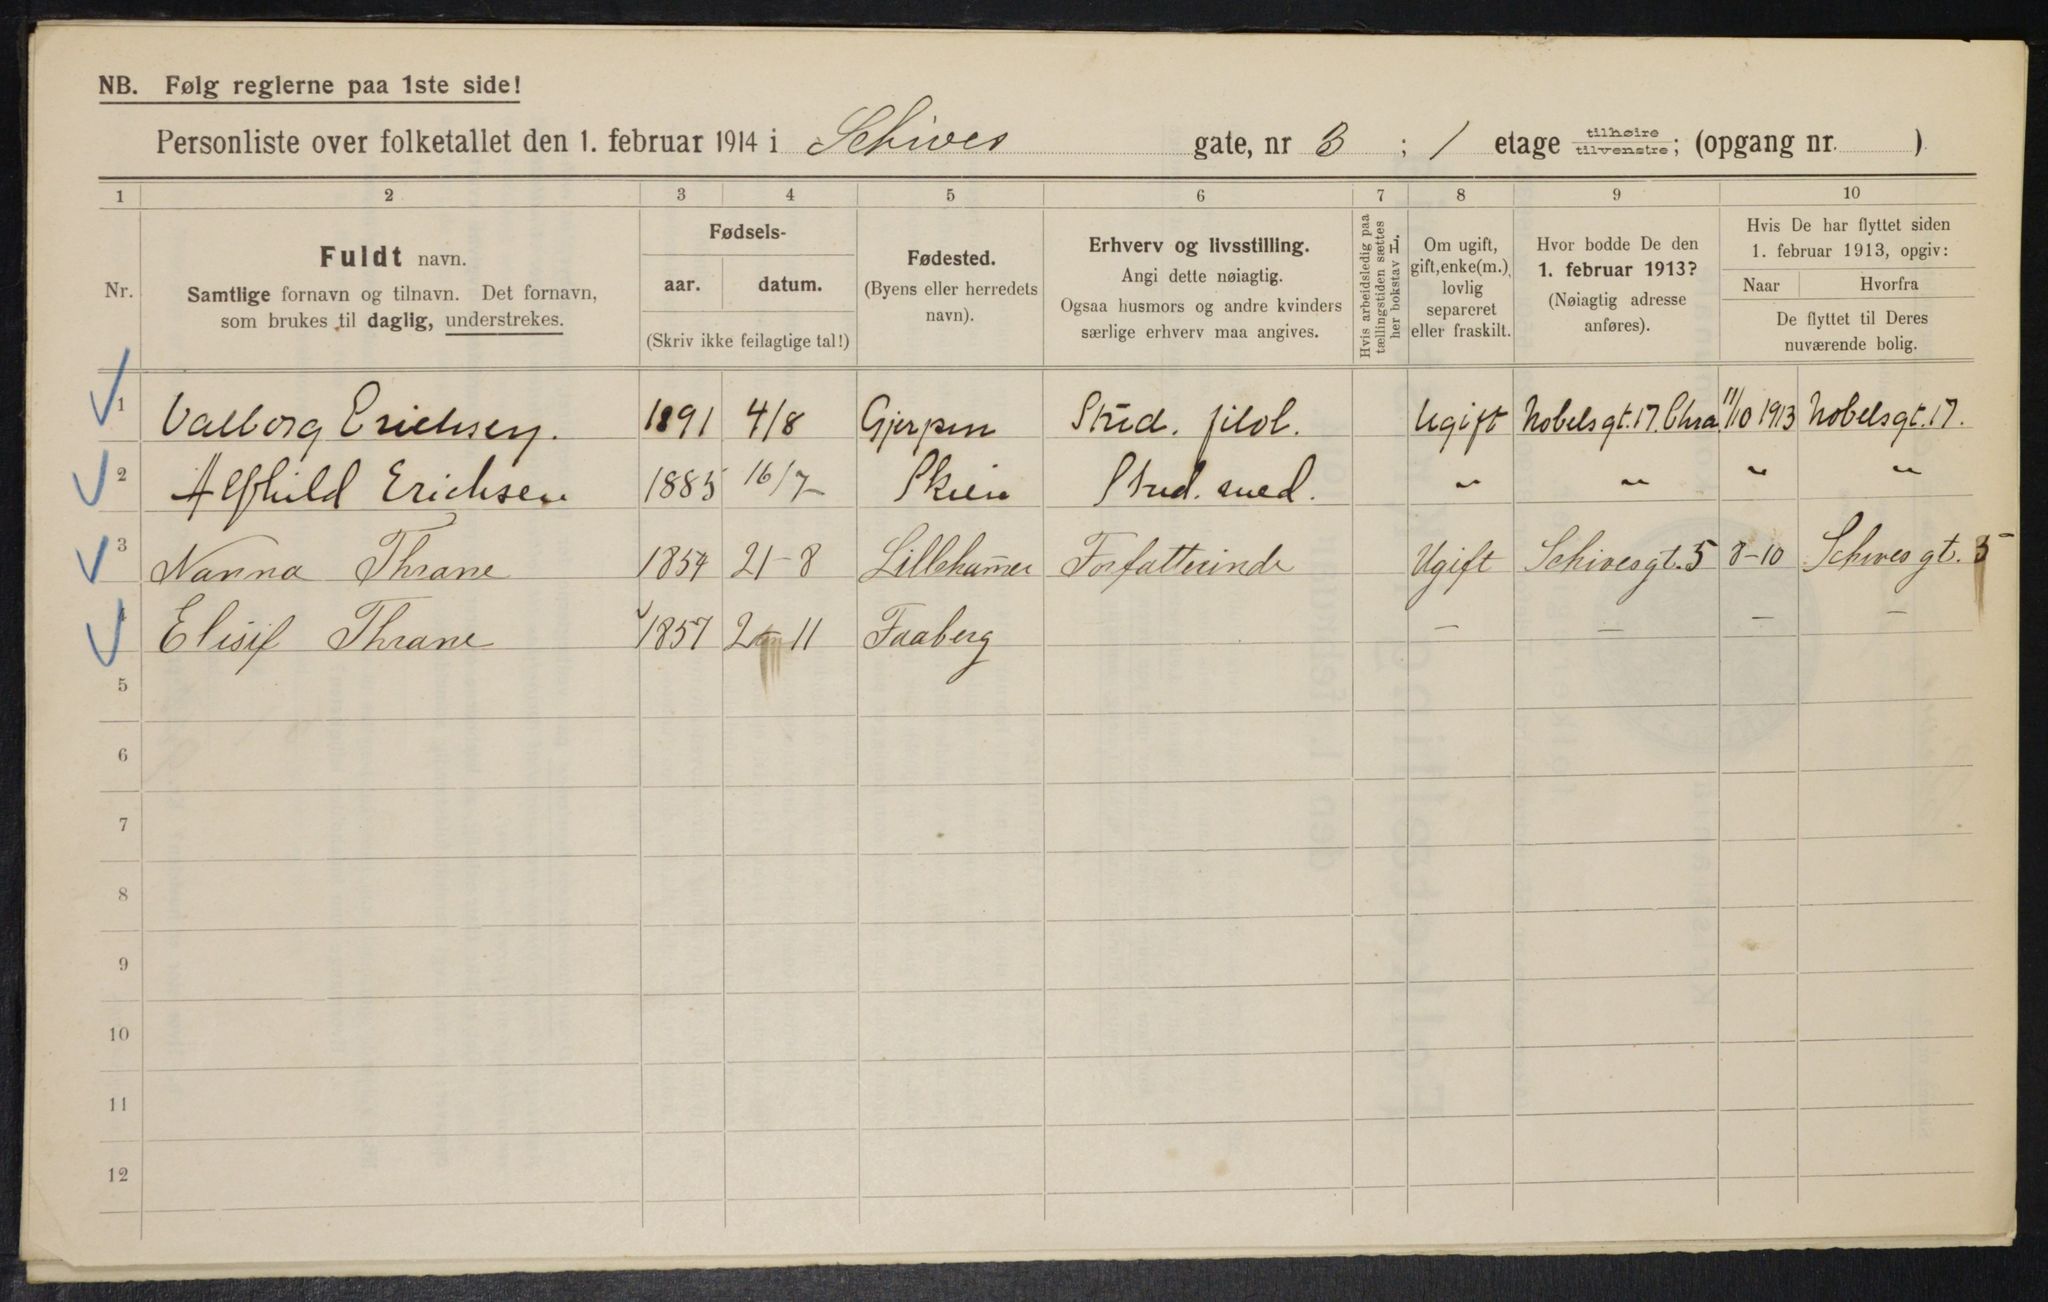 NB. Følg reglerne paa 1ste side!
Personliste over folketallet den 1. februar 1914 i Schives gate, nr 3 ; 1 etage tilhøire tilvenstre; (opgang nr. )
1 2 3 4 5 6 7 8 9 10
Nr.
Fuldt navn.
Samtlige fornavn og tilnavn. Det fornavn,
som brukes til daglig, understrekes.
Fødsels-
aar. datum.
(Skriv ikke feilagtige tal!)
Fødested.
(Byens eller herredets
navn).
Erhverv og livsstilling.
Angi dette nøiagtig.
Ogsaa husmors og andre kvinders
særlige erhverv maa angives.
Hvis arbeidsledig paa
tællingstiden sættes
her bokstav L.
Om ugift,
gift, enke(m.),
lovlig
separeret
eller fraskilt.
Hvor bodde De den
1. februar 1913?
(Nøiagtig adresse
anføres).
Hvis De har flyttet siden
1. februar 1913, opgiv:
Naar Hvorfra
De flyttet til Deres
nuværende bolig.
1 Valborg Erichsen. 1891 4/8 Gjerpen Stud. filol. Ugift Nobelsgt. 17. Chra. 11/10 1913 Nobelsgt. 17.
2 Alfhild Erichsen 1885 16/7 Skien Stud. med. " " " "
3 Nanna Thrane 1854 21-8 Lillehammer Forfatterinde Ugift Schivesgt. 5 8-10 Schives gt. 5
4 Elisif Thrane 1857 2-11 Faaberg — — — —
5
6
7
8
9
10
11
12